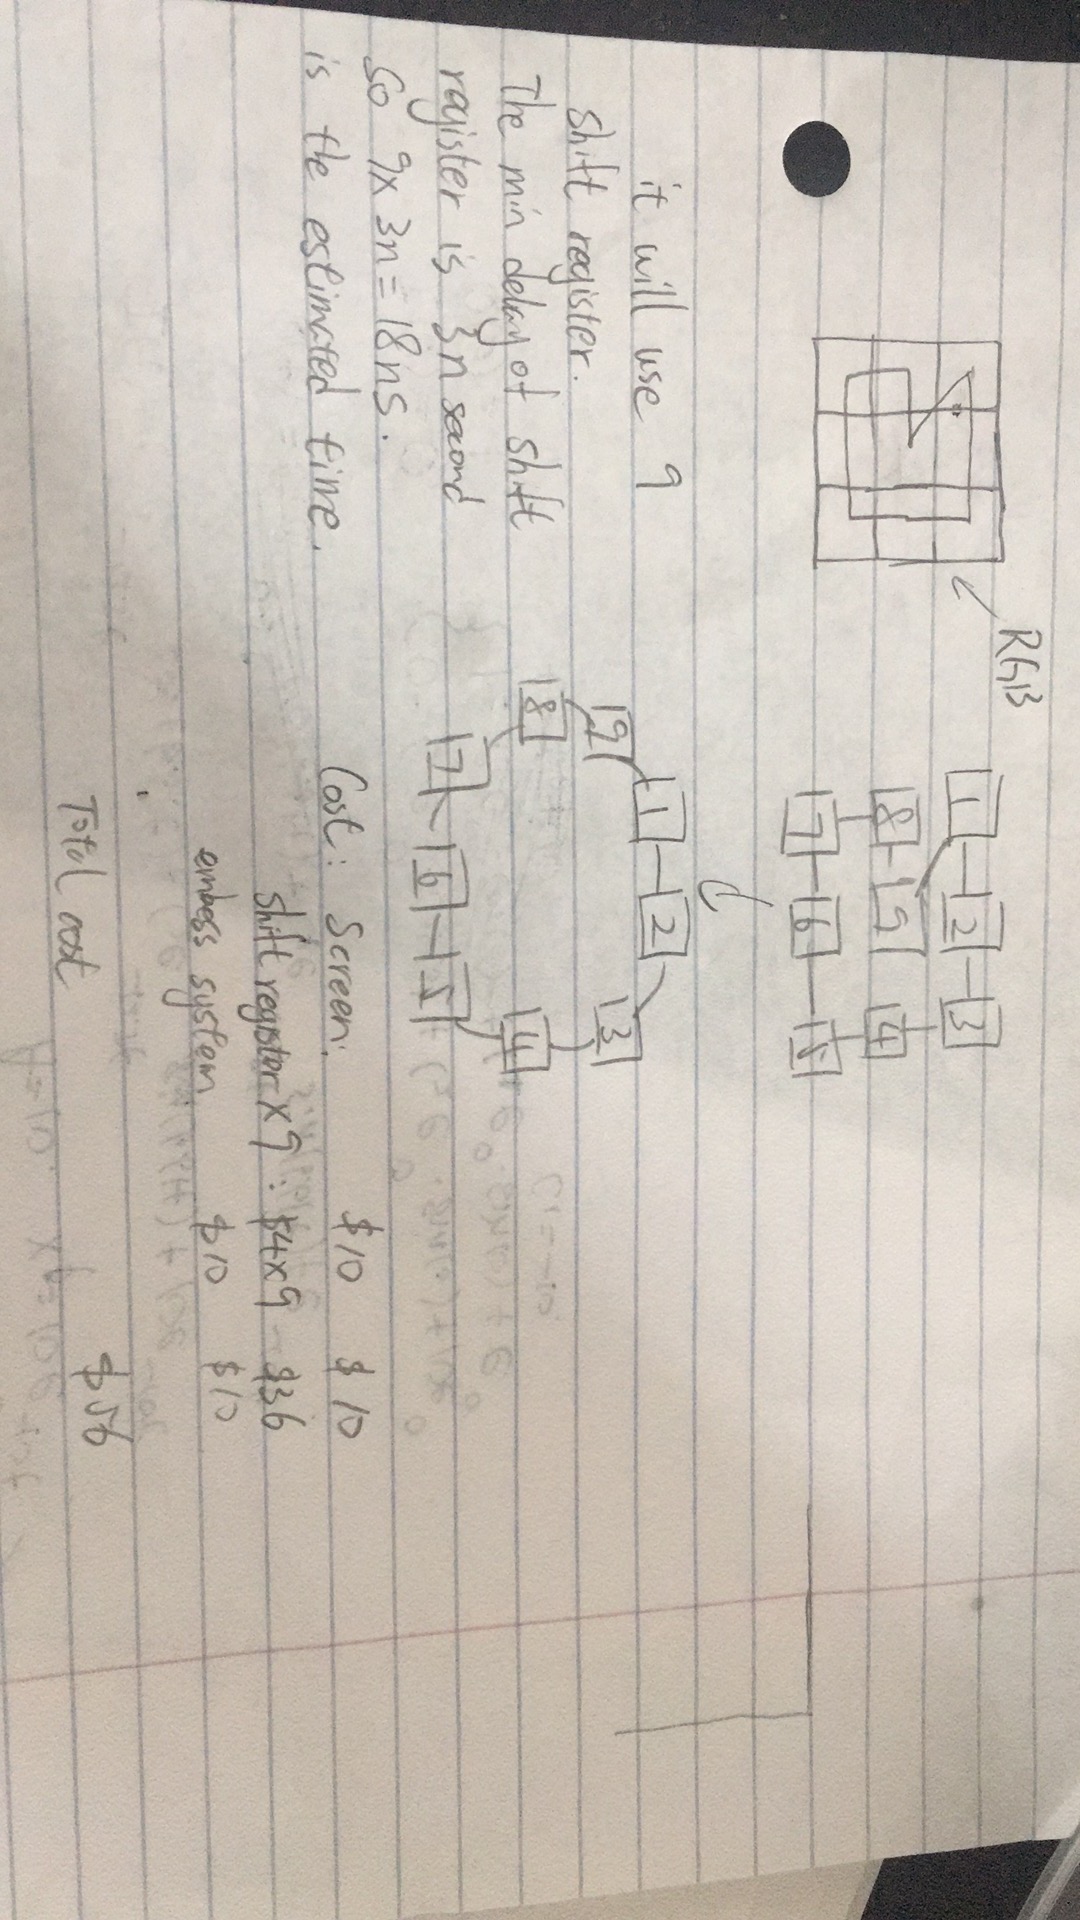 RGB
1 2 3
8 9 4
7 6 5
1 2
9 3
8 4
7 6 5
it will use 9
shift register.
The min delay of shift
register is 3n second
so 9x 3n = 18ns.
is the estimated time.
Cost: Screen: $10 $10
shift register x9 : $4x9 $36
embess system $10 $10
Total cost $56